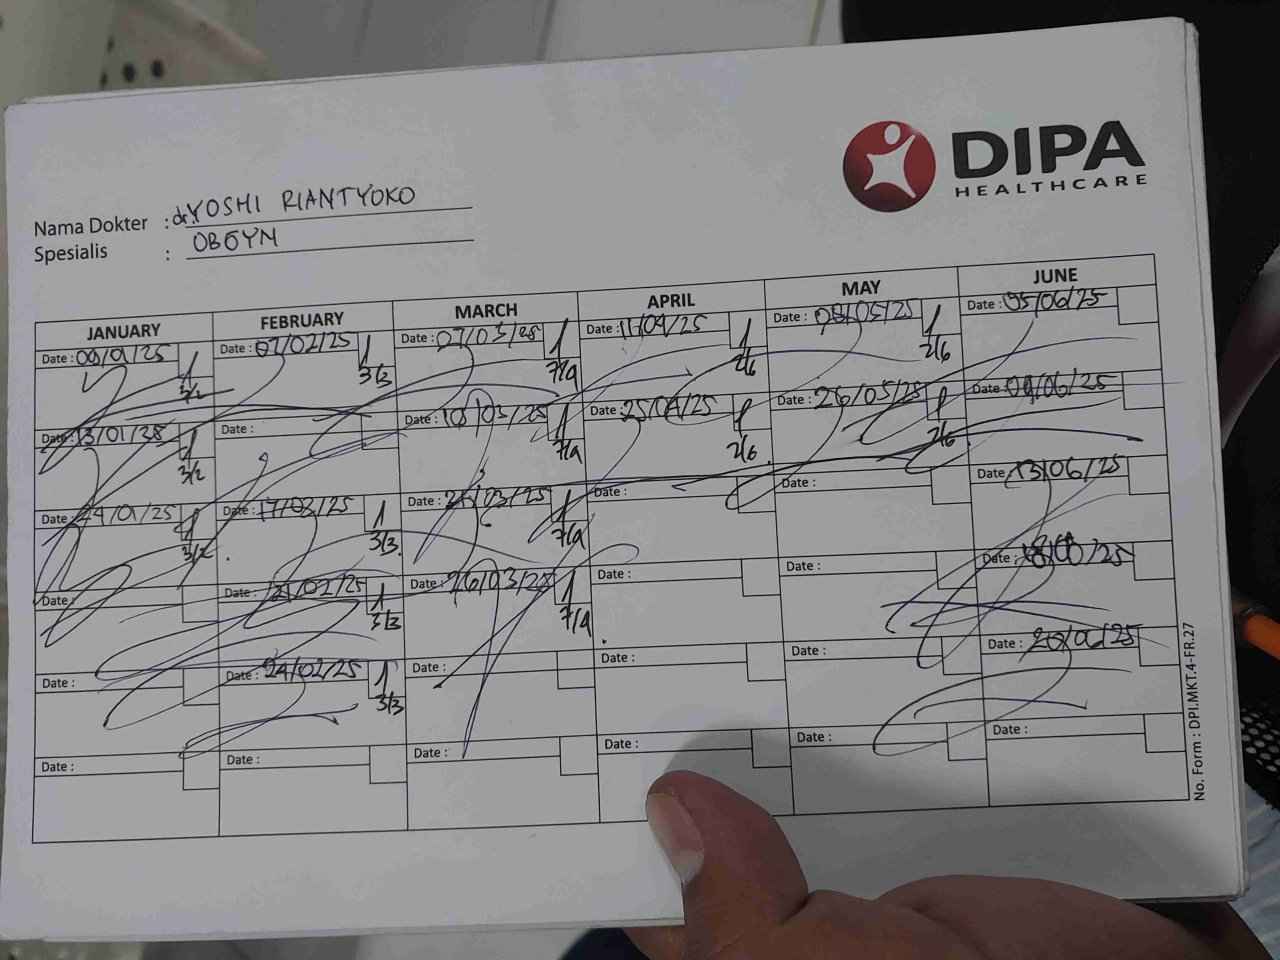 DIPA
HEALTHCARE
Nama Dokter : dr. YOSHI RIANTYOKO
Spesialis : OBGYN
JANUARY FEBRUARY MARCH APRIL MAY JUNE
Date : 09/01/25 3/2 Date : 07/02/25 3/3 Date : 07/03/25 7/4 Date : 11/04/25 2/6 Date : 08/05/25 2/6 Date : 05/06/25
Date : 13/01/25 3/2 Date : Date : 10/03/25 7/4 Date : 25/04/25 2/6 Date : 26/05/25 2/6 Date : 09/06/25
Date : 24/01/25 3/2 Date : 17/02/25 3/3 Date : 7/4 Date : Date : Date : 13/06/25
Date : Date : 21/02/25 3/3 Date : 26/03/25 7/4 Date : Date : Date :
Date : Date : 24/02/25 3/3 Date : Date : Date : Date : 20/06/25
Date : Date : Date : Date : Date : Date :
No. Form : DPI.MKT.4-FR.27